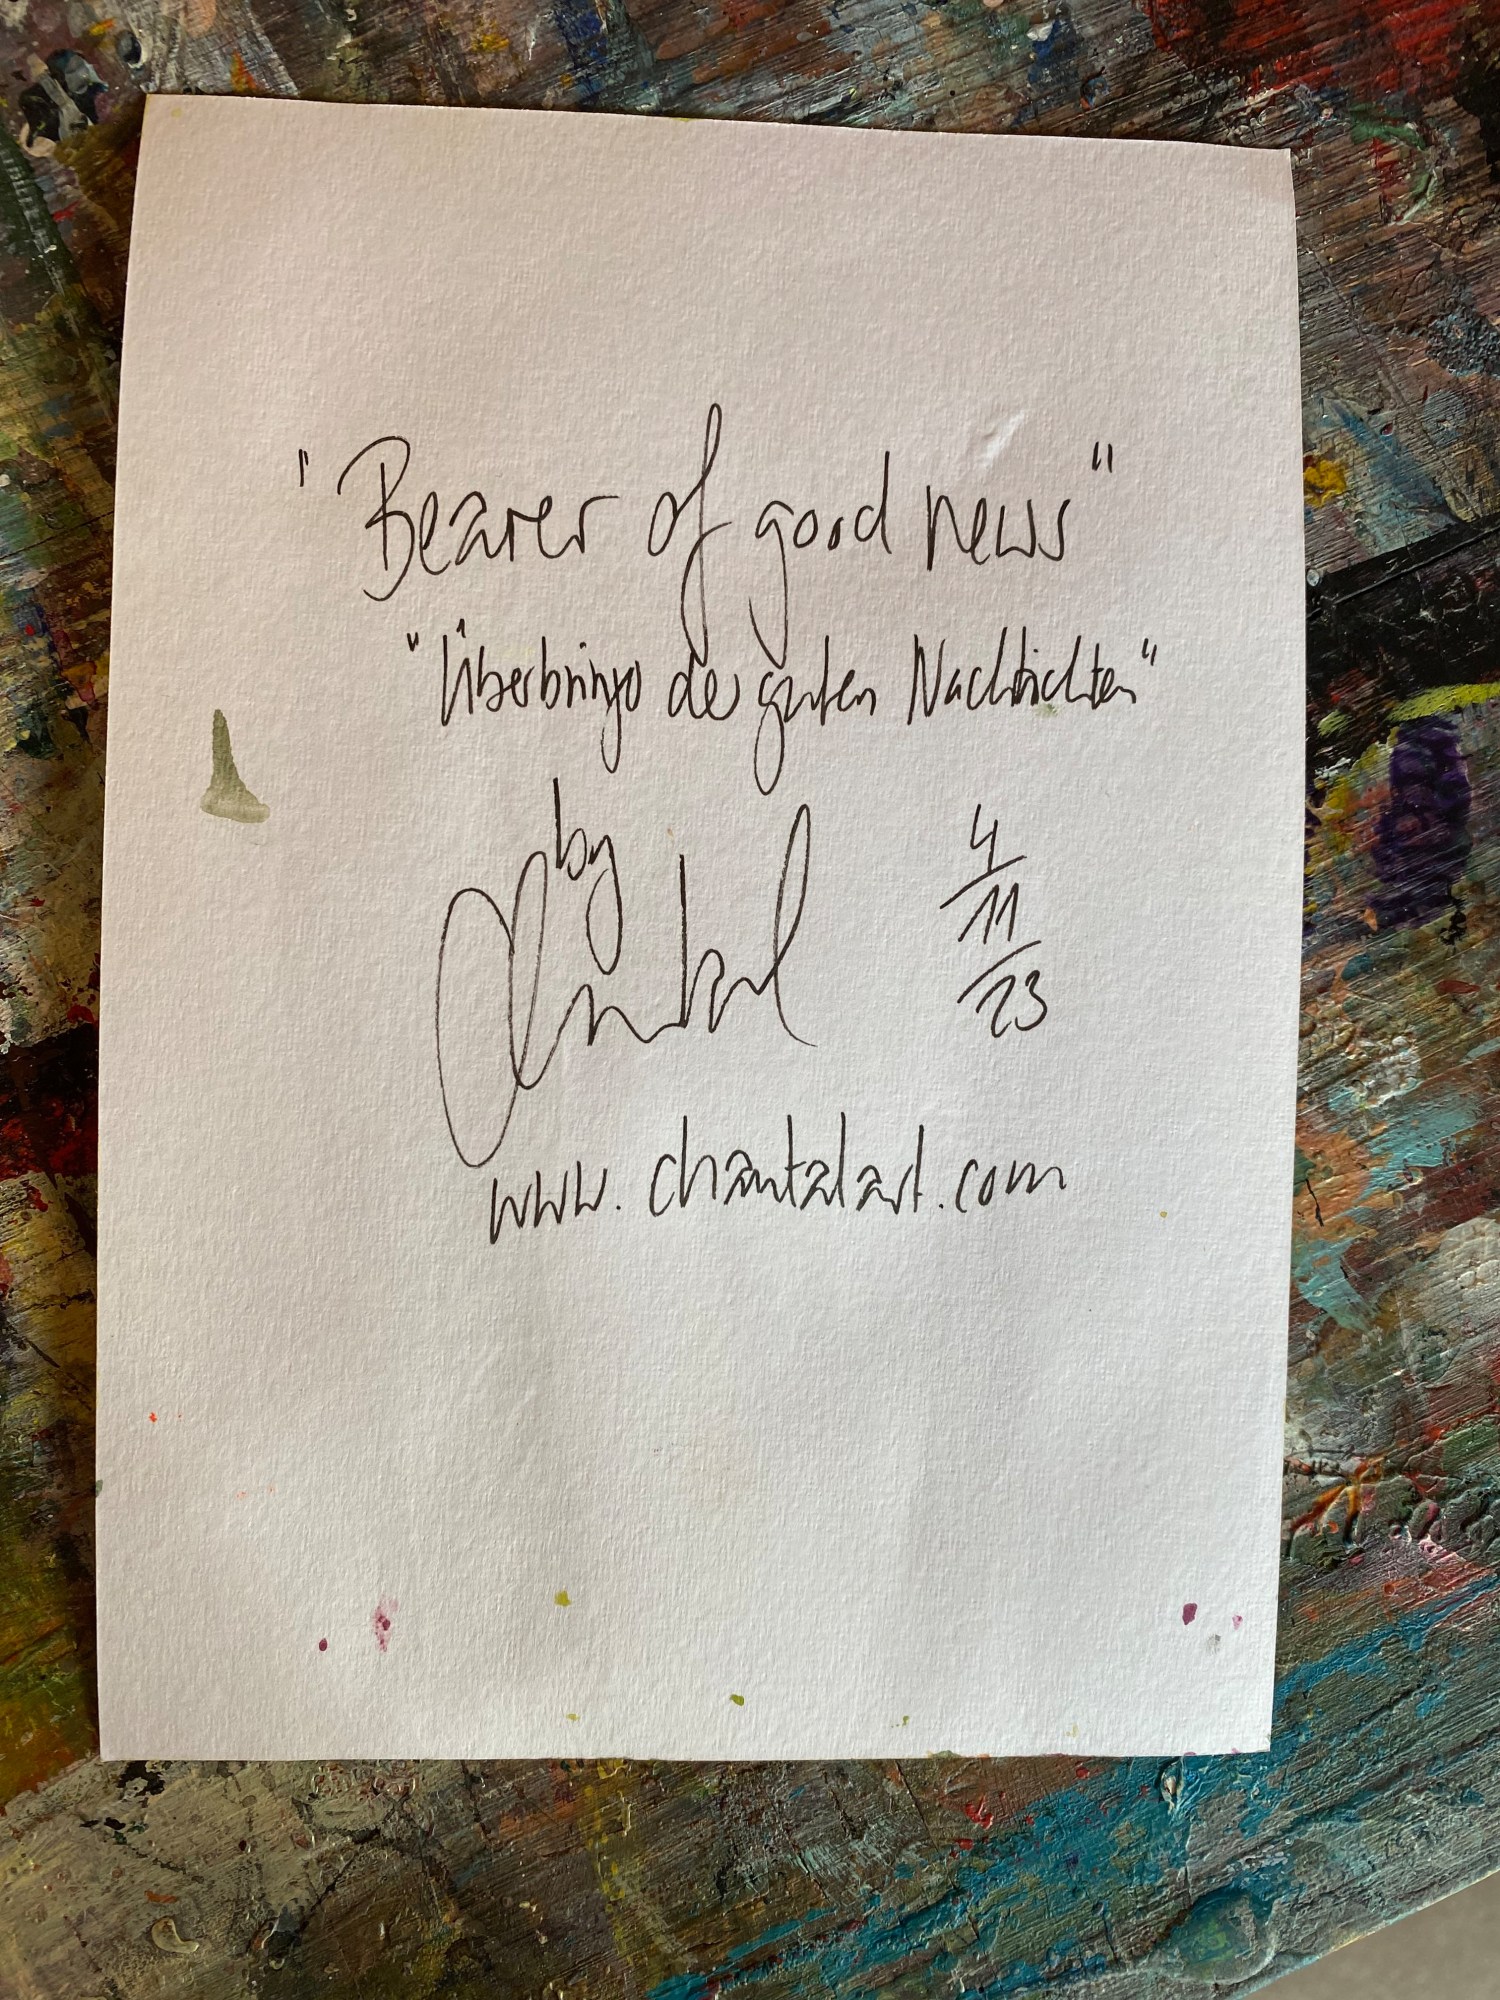 "Bearer of good news"
"Überbringer der guten Nachrichten"
by
Chantal
4/11/23
www.chantalart.com